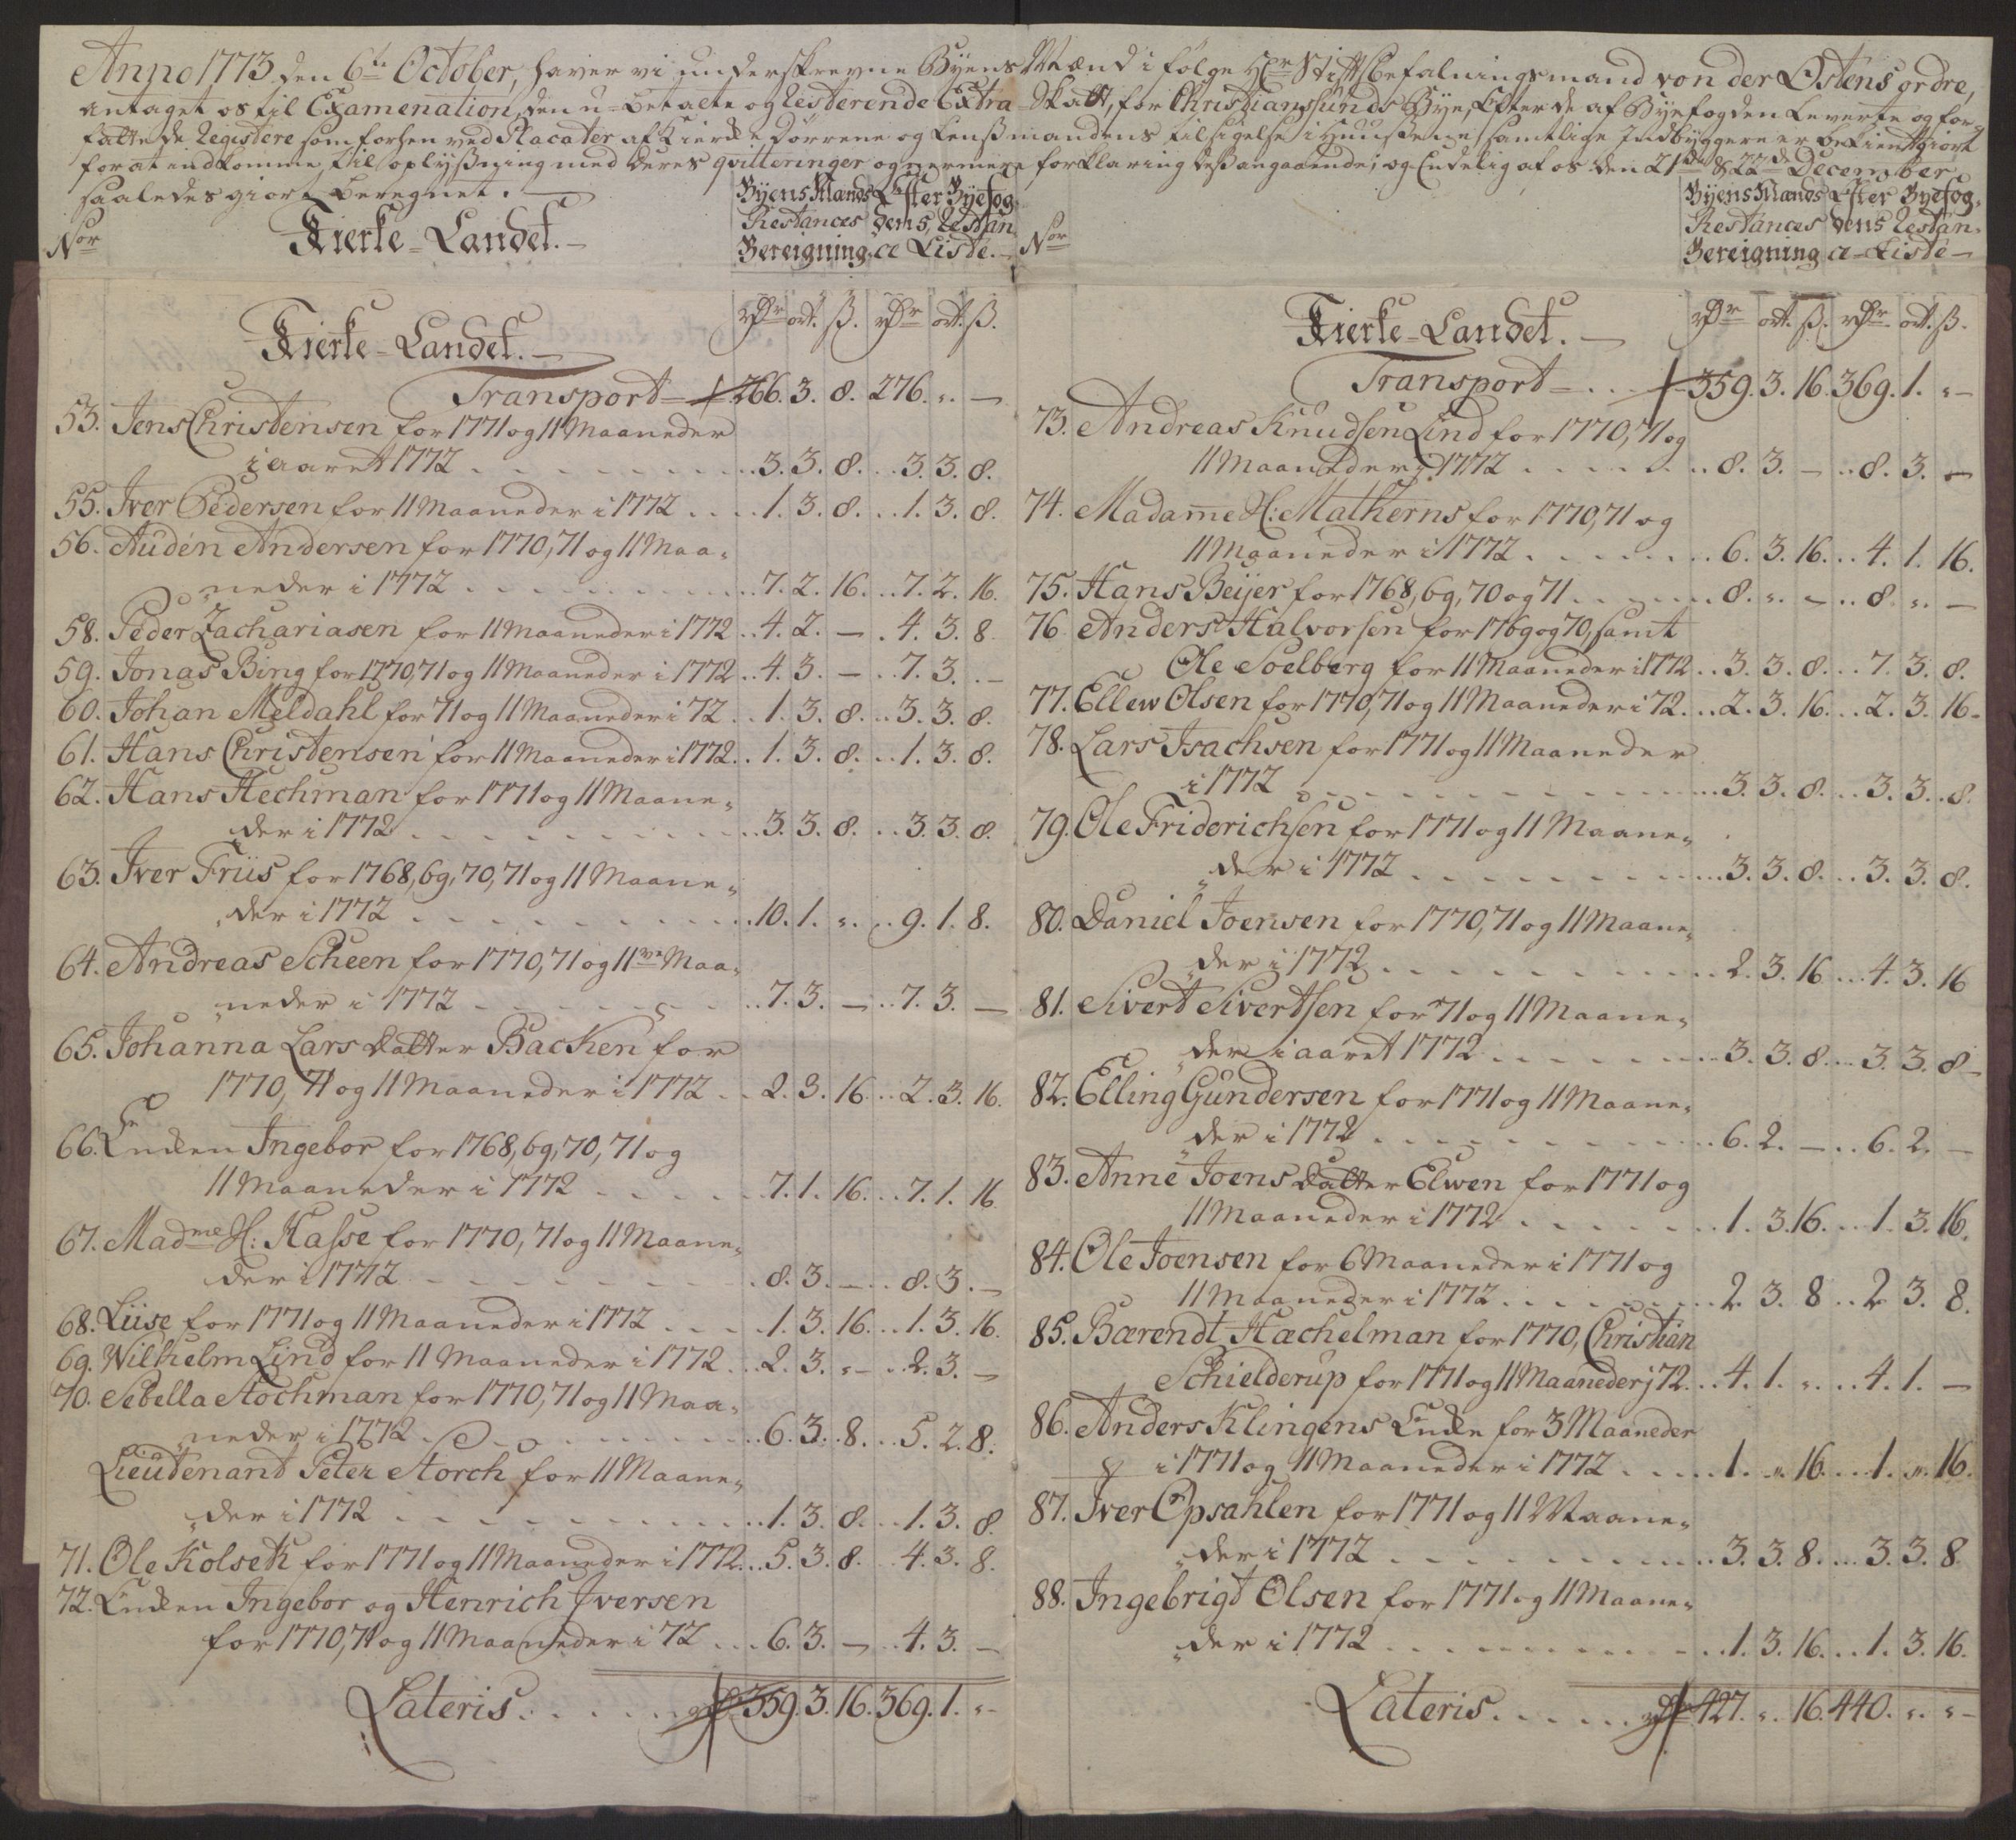 Anno 1773 den 6te October, haver vi underskrevne Byens Mænd i følge Hr Stiftsbefalningsmand von der Ostens ordre,
antaget os til Examenation, den u-betalte og Resterende Extra-Skatt, for Christiansunds Bye, Efter de af Byefogden Leverte og for-
fattede Registere som forhen ved Placater af Kierke Dørrene og Lensmandens tilsigelse i Huusene, samtlige Indbyggere er bekientgiort
for at indkomme til oplysning med deres qvitteringer og nermere forklaring des angaaende; og Endelig af os den 21de & 22de December
saaledes giort beregnet.
Byens Mænds Restances Bereigning. Efter Byefogdens Restance Liste.
Nor Kierke-Landet.
Nor Byens Mænds Restances Bereigning Efter Byefogdens Restance-Liste
Kierke-Landet. rdr ort. ß. rdr ort. ß.
Transport 266. 3. 8. 276. „. —
53. Jens Christensen for 1771 og 11 Maaneder
i aaret 1772 3. 3. 8. 3. 3. 8.
55. Iver Pedersen for 11 Maaneder i 1772 1. 3. 8. 1. 3. 8.
56. Auden Andersen for 1770, 71 og 11 Maa-
neder i 1772 7. 2. 16. 7. 2. 16.
58. Peder Zachariasen for 11 Maaneder i 1772 4. 2. — 4. 3. 8.
59. Jonas Bing for 1770, 71 og 11 Maaneder i 1772 4. 3. — 7. 3. —
60. Johan Meldahl for 71 og 11 Maaneder i 72 1. 3. 8. 3. 3. 8.
61. Hans Christensen for 11 Maaneder i 1772 1. 3. 8. 1. 3. 8.
62. Hans Hechman for 1771 og 11 Maane-
der i 1772 3. 3. 8. 3. 3. 8.
63. Iver Friis for 1768, 69, 70, 71 og 11 Maane-
der i 1772 10. 1. „. 9. 1. 8.
64. Andreas Scheen for 1770, 71 og 11ve Maa-
neder i 1772 7. 3. — 7. 3. —
65. Johanna Lars Datter Backen for
1770, 71 og 11 Maaneder i 1772 2. 3. 16. 2. 3. 16.
66. Enken Ingebor for 1768, 69, 70, 71 og
11 Maaneder i 1772 7. 1. 16. 7. 1. 16.
67. Madme H: Kasse for 1770, 71 og 11 Maane-
der i 1772 8. 3. — 8. 3. —
68. Liise for 1771 og 11 Maaneder i 1772 1. 3. 16. 1. 3. 16.
69. Wilhelm Lind for 11 Maaneder i 1772 2. 3. „- 2. 3. —
70. Sebella Stochman for 1770, 71 og 11 Maa-
neder i 1772 6. 3. 8. 5. 2. 8.
Lieutenand Peter Storch for 11 Maane-
der i 1772 1. 3. 8. 1. 3. 8.
71. Ole Kolsek for 1771 og 11 Maaneder i 1772 5. 3. 8. 4. 3. 8.
72. Enken Ingebor og Henrich Iversen
for 1770, 71 og 11 Maaneder i 72 6. 3. — 4. 3. —
Lateris rdr 359. 3. 16. 369. 1. „-
Kierke-Landet. rdr ort. ß. rdr ort. ß.
Transport 359. 3. 16. 369. 1. „-
73. Andreas Knudsen Lind for 1770, 71 og
11 Maaneder i 1772 8. 3. — 8. 3. —
74. Madame H: Matherns for 1770, 71 og
11 Maaneder i 1772 6. 3. 16. 4. 1. 16.
75. Hans Beyer for 1768, 69, 70 og 71 8. „. — 8. „. —
76. Anders Halvorsen for 1769 og 70, samt
Ole Soelberg for 11 Maaneder i 1772 3. 3. 8. 7. 3. 8.
77. Ellew Olsen for 1770, 71 og 11 Maaneder i 72 2. 3. 16. 2. 3. 16.
78. Lars Isachsen for 1771 og 11 Maaneder
i 1772 3. 3. 8. 3. 3. 8.
79. Ole Friderichsen for 1771 og 11 Maane-
der i 1772 3. 3. 8. 3. 3. 8.
80. Daniel Joensen for 1770, 71 og 11 Maane-
der i 1772 2. 3. 16 4. 3. 16
81. Sivert Sivertsen for 71 og 11 Maane-
der i aaret 1772 3. 3. 8. 3. 3. 8
82. Elling Gundersen for 1771 og 11 Maane-
der i 1772 6. 2. — 6. 2. —
83. Anne Joens Datter Elwen for 1771 og
11 Maaneder i 1772 1. 3. 16. 1. 3. 16.
84. Ole Joensen for 6 Maaneder i 1771 og
11 Maaneder i 1772 2. 3. 8 2. 3. 8.
85. Bærendt Hæchelman for 1770, Christian
Schielderup for 1771 og 11 Maaneder i 72 4. 1. „. 4. 1. —
86. Anders Klingens Enke for 3 Maaneder
i 1771 og 11 Maaneder i 1772 1. „. 16. 1. „. 16.
87. Iver Opsahlen for 1771 og 11 Maane-
der i 1772 3. 3. 8. 3. 3. 8.
88. Ingebrigt Olsen for 1771 og 11 Maane-
der i 1772 1. 3. 16. 1. 3. 16.
Lateris rdr 427. „. 16. 440. „. „-